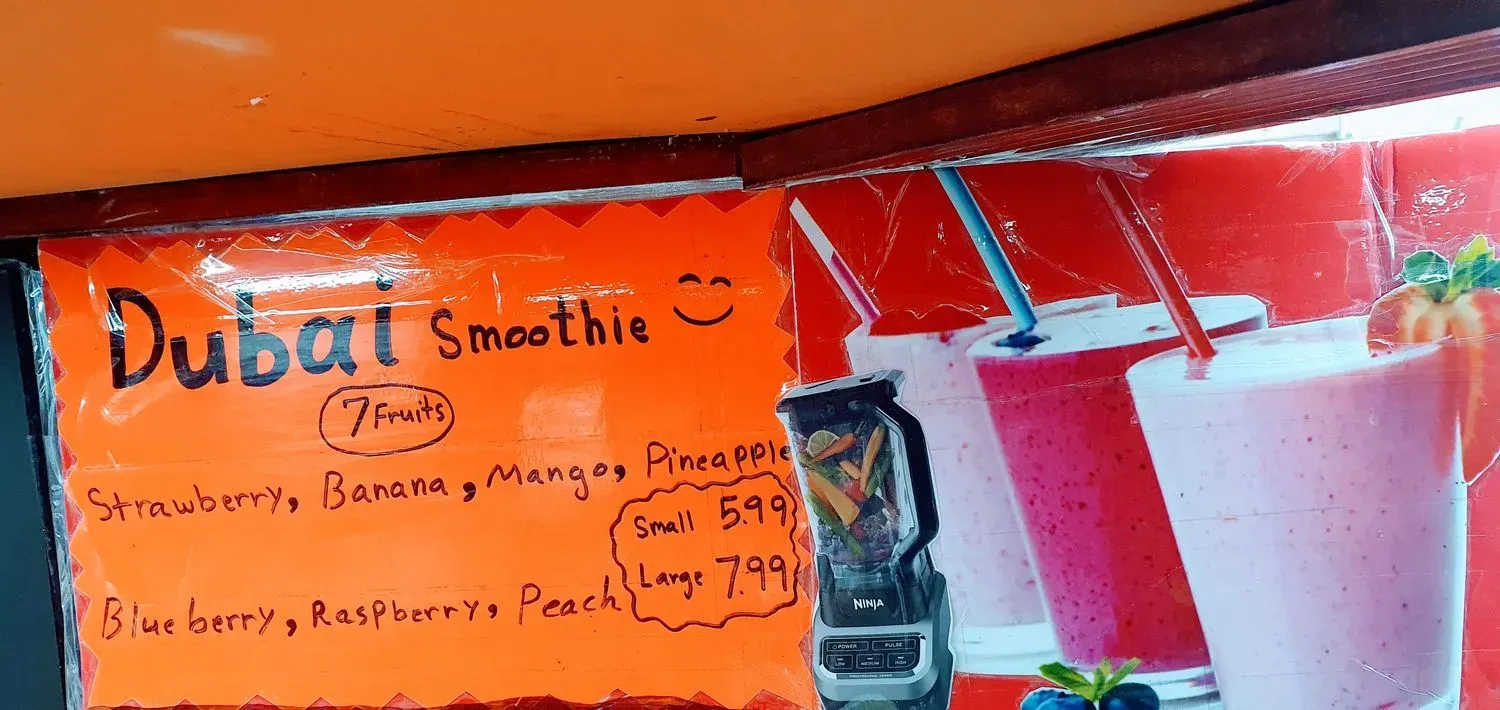 Dubai Smoothie
7 Fruits
Strawberry, Banana, Mango, Pineapple
Small 5.99
Large 7.99
Blueberry, Raspberry, Peach
NINJA
POWER PULSE
LOW MEDIUM HIGH